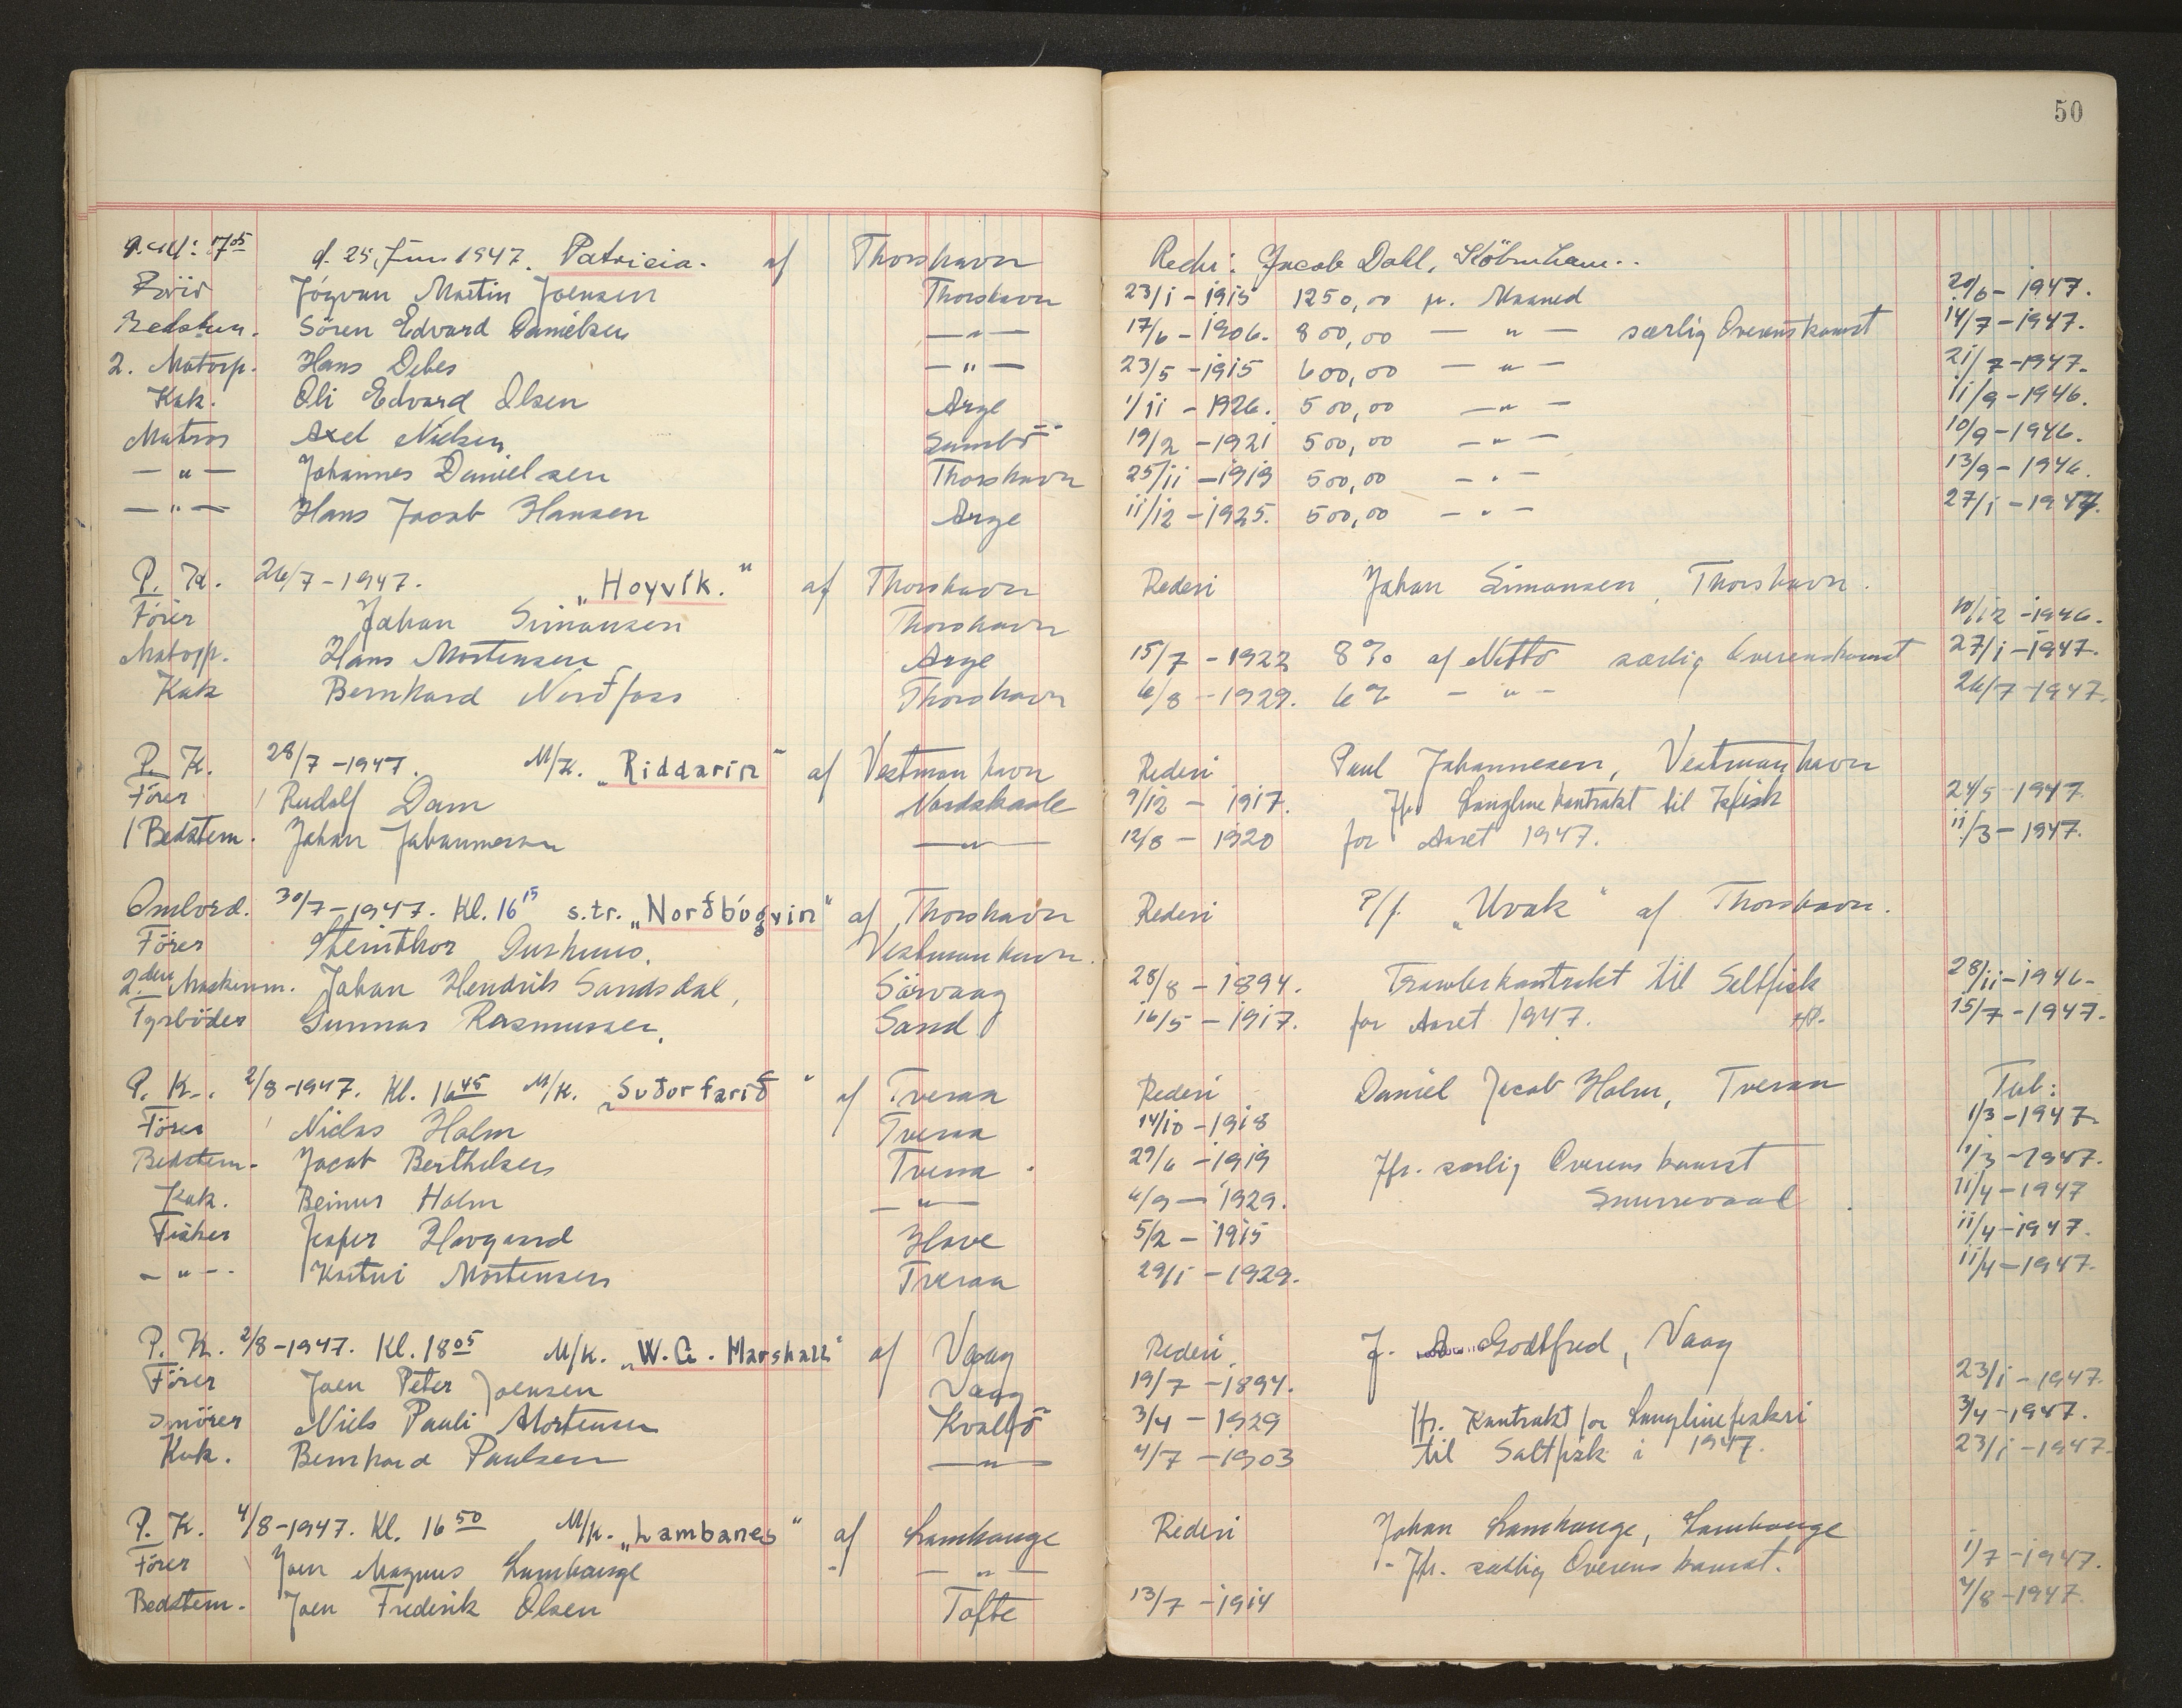 50
d. 25. Juni 1947. Patricia. af Thorshavn Rederi: Jacob Dahl, Köbenhavn..
Förer Jógvan Martin Joensen Thorshavn 23/1 - 1915 1250,00 pr. Maaned 20/6 - 1947.
Bedstem. Sören Edvard Danielsen —"— 17/6 - 1906. 800,00 — " — særlig Overenskomst 14/7 - 1947.
2. Motorp. Hans Debes —"— 23/5 - 1915 600,00 — " — 21/7 - 1947.
Kok. Oli Edvard Olsen Arge 1/11 - 1926. 500,00 —"— 11/9 - 1946.
Matros Axel Nielsen Sumbö 19/2 - 1921 500,00 —"— 10/9 - 1946.
—"— Johannes Danielsen Thorshavn 25/11 - 1919 500,00 —"— 13/9 - 1946.
—"— Hans Jacob Hansen Arge 11/12 - 1925. 500,00 —"— 27/1 - 1947.
P. K. 26/7 - 1947. „Hoyvík." af Thorshavn Rederi Johan Simonsen, Thorshavn.
Förer Johan Simonsen Thorshavn 10/12 - 1946.
Motopp. Hans Mortensen Arge 15/7 - 1922 8% af Netto særlig Overenskomst 27/1 - 1947.
Kok Bernhard Norðfoss Thorshavn 6/8 - 1929. 6% — " — 26/7 - 1947.
P. K. 28/7 - 1947. M/K. „Riddarin" af Vestmanhavn Rederi Paul Johannesen, Vestmanhavn
Förer Rudolf Dam Nordskaale 9/12 - 1917. Jfr. Langlinekontrakt til Isfisk 24/5 - 1947.
1 Bedstem. Johan Johannesen —"— 12/8 - 1920 for Aaret 1947. 11/3 - 1947.
Ombord. 30/7 - 1947. Kl. 16 15 s.tr. „Norðbúgvin" af Thorshavn Rederi P/f. „Uvak" af Thorshavn.
Förer Steinthor Vestmanhavn.
2den Maskinm. Johan Hendrik Sandsdal, Sörvaag 28/8 - 1894. Trawlerkontrakt til Saltfisk 28/11 - 1946.
Fyrböder Gunnar Rasmussen, Sand 16/5 - 1917. for Aaret 1947. 15/7 - 1947.
P. K. 2/8 - 1947. Kl. 16 45 M/K. „Suðorfarið" af Tveraa Rederi Daniel Jacob Holm, Tveraa
Förer Niclas Holm Tveraa 14/10 - 1918 1/3 - 1947.
Bedstem. Jacob Berthelsen Tveraa. 29/6 - 1919 Jfr. særlig Overenskomst 11/3 - 1947.
Kok. Beinur Holm —"— 6/9 - 1929. Snurrevaad. 11/4 - 1947
Fisker Jesper Hovgaard Hove 5/2 - 1915 11/4 - 1947.
—"— Mortensen Tveraa 29/1 - 1929. 11/4 - 1947.
P. K. 2/8 - 1947. Kl. 18 05 M/K. „W. G. Marshall" af Vaag Rederi J. Godtfred, Vaag
Förer Joen Peter Joensen Vaag 19/7 - 1894. 23/1 - 1947.
Smörer Niels Pauli Mortensen Kvalbö 3/4 - 1929 Jfr. Kontrakt for Langlinefiskeri 3/4 - 1947.
Kok. Bernhard Paulsen —"— 4/7 - 1903 til Saltfisk i 1947. 23/1 - 1947.
P. K. 4/8 - 1947. Kl. 16 50 M/K. „Lambanes" af Lamhauge Rederi Johan Lamhauge, Lamhauge
Förer Joen Magnus Lamhauge —"— Jfr. særlig Overenskomst. 1/7 - 1947.
Bedstem. Joen Frederik Olsen Tofte 13/7 - 1914 4/8 - 1947.